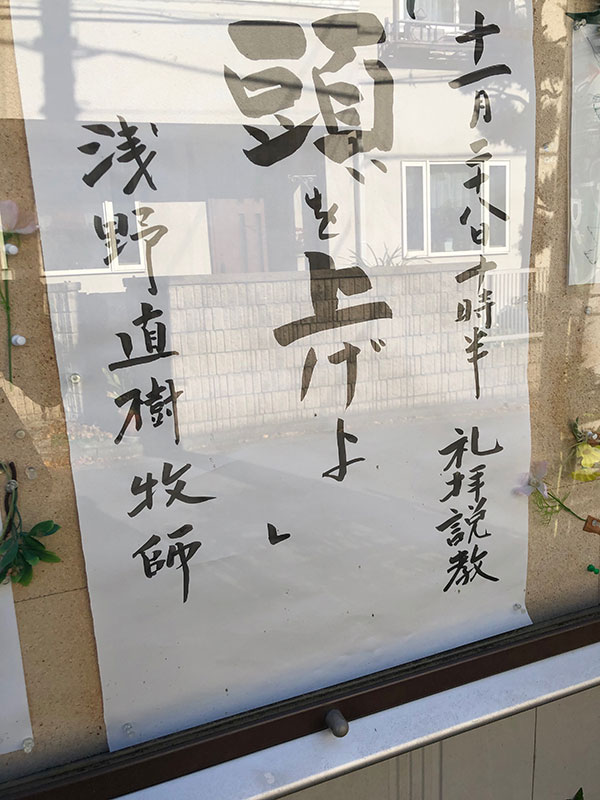 十一月二十八日十時半 礼拝説教
頭を上げよ」
浅野直樹牧師